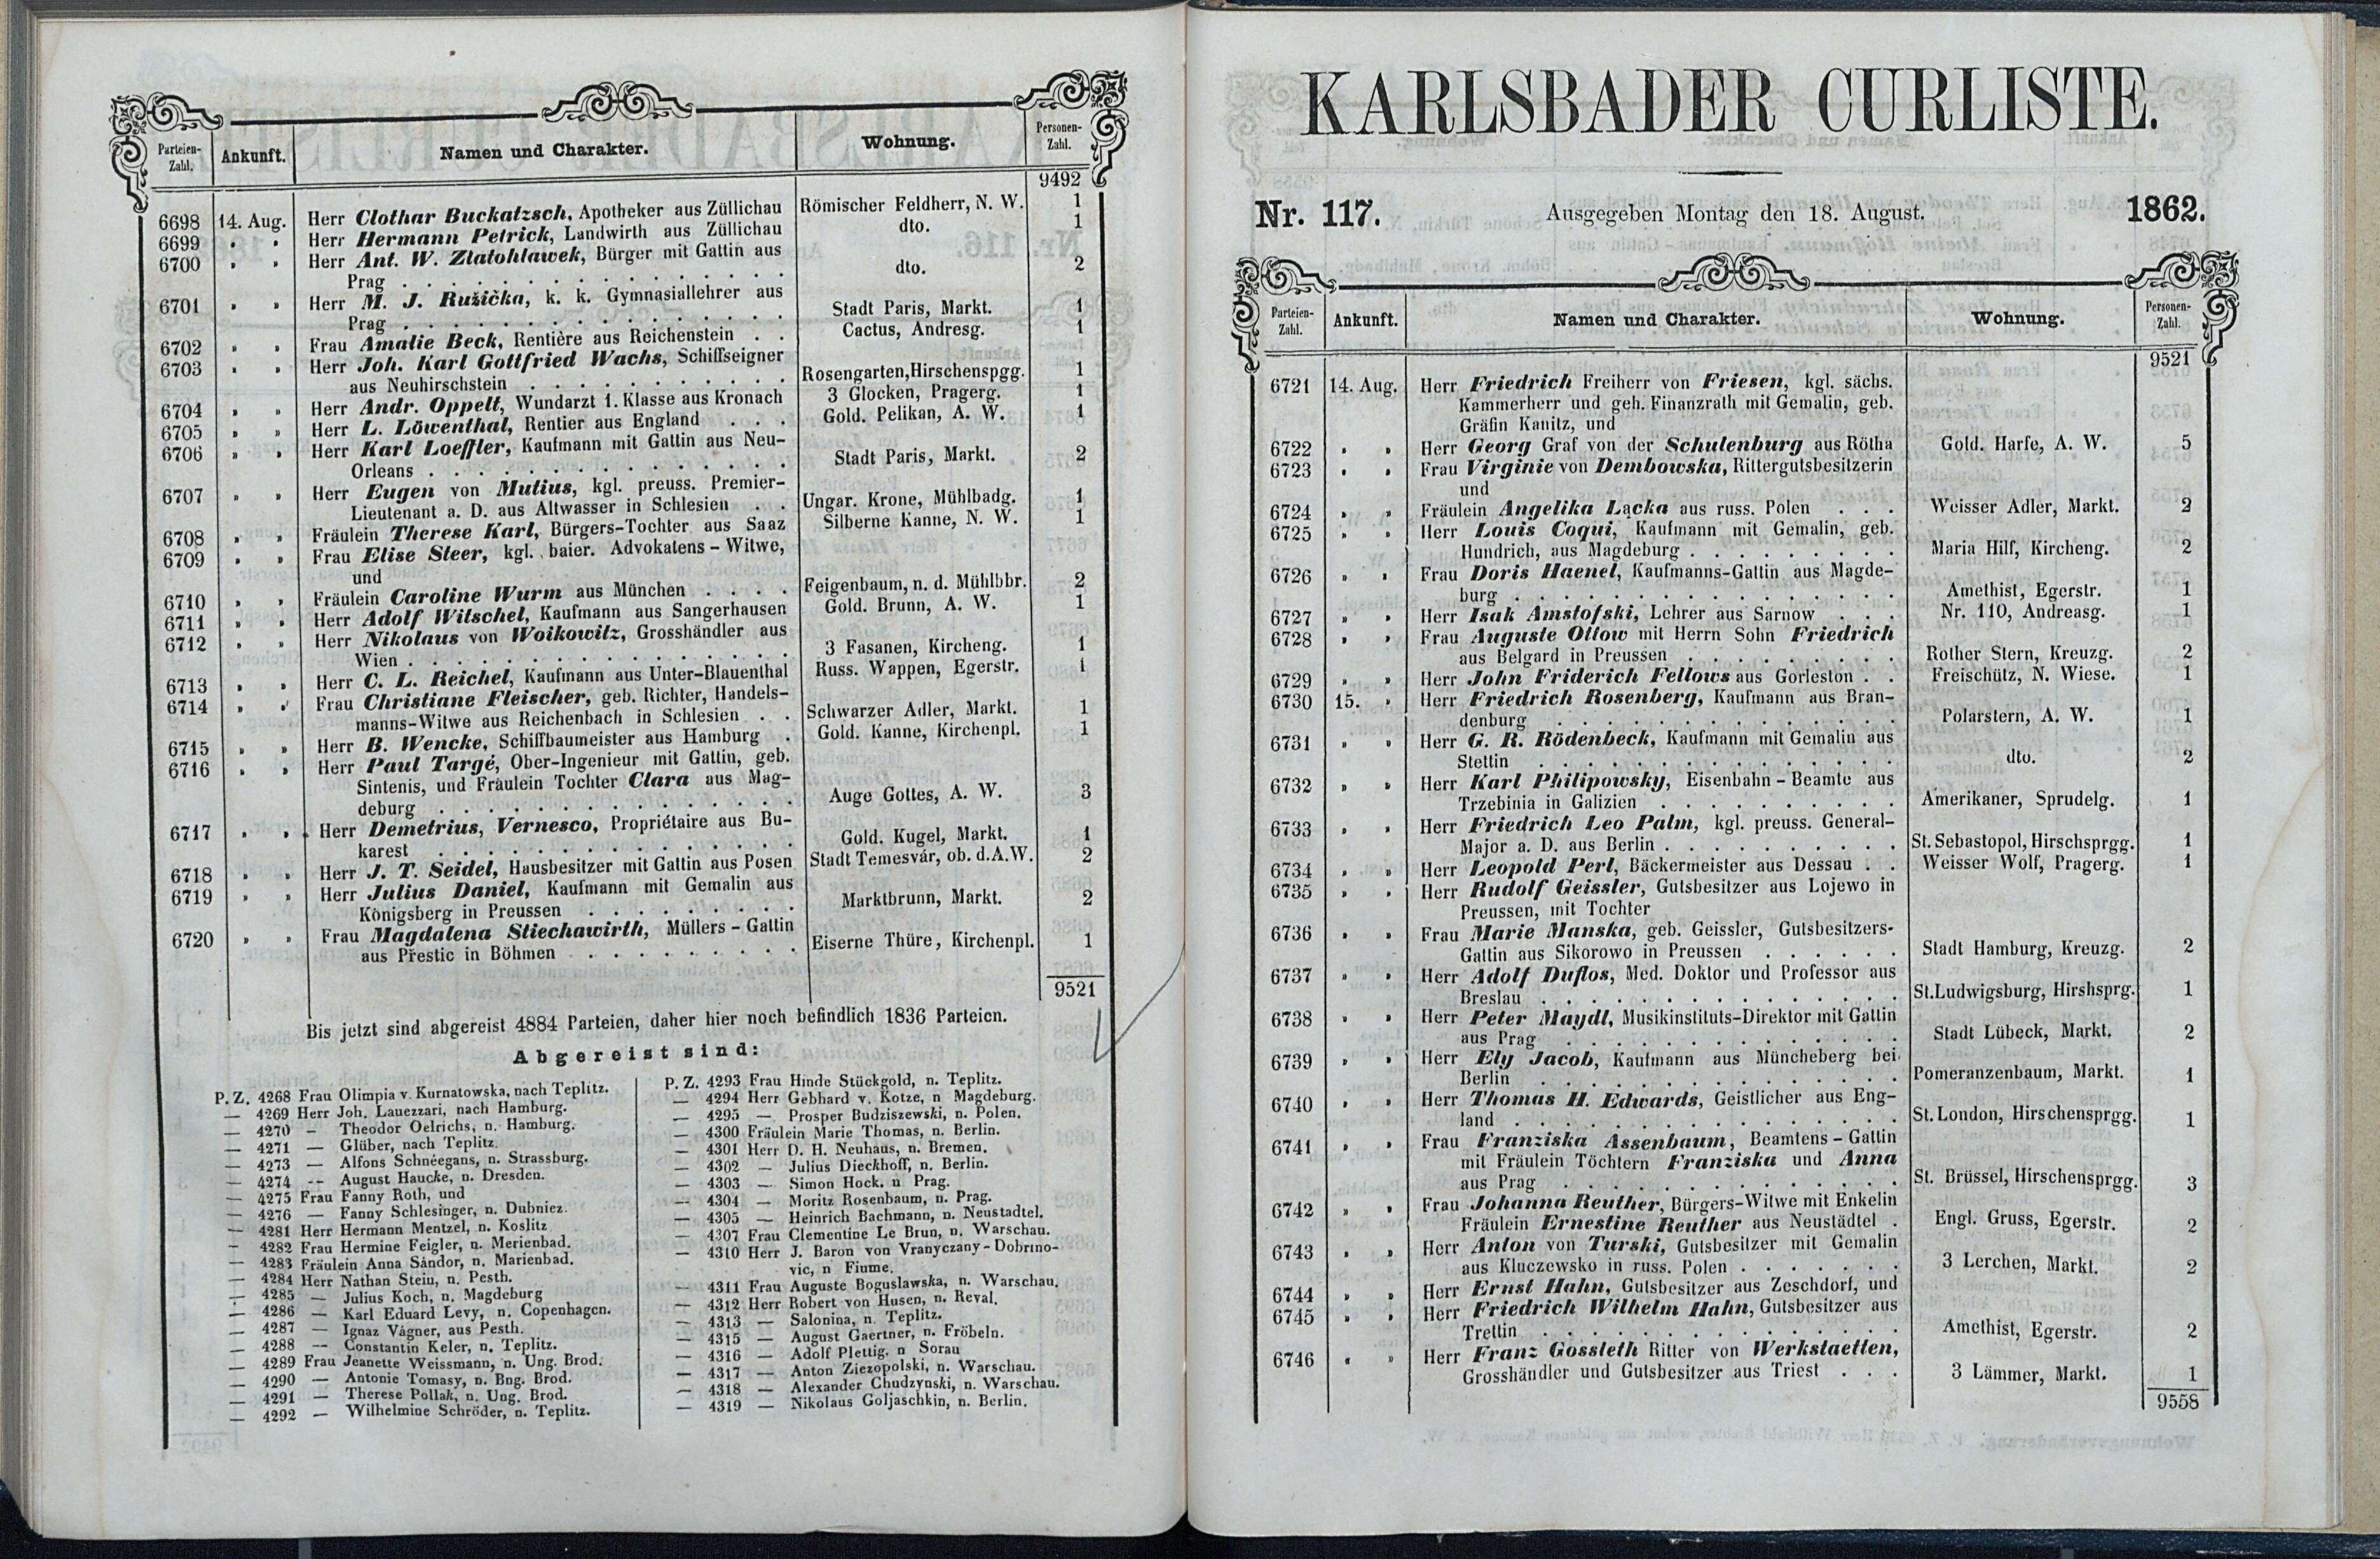 Parteien-Zahl. Ankunft. Namen und Charakter. Wohnung. Personen-Zahl.
9492
6698 14. Aug. Herr Clothar Buckatzsch, Apotheker aus Züllichau Römischer Feldherr, N. W. 1
6699 " " Herr Hermann Petrick, Landwirth aus Züllichau dto. 1
6700 " " Herr Ant. W. Zlatohlawek, Bürger mit Gattin aus
Prag . . . . . dto. 2
6701 " " Herr M. J. Ružička, k. k. Gymnasiallehrer aus
Prag . . . . . Stadt Paris, Markt. 1
6702 " " Frau Amalie Beck, Rentière aus Reichenstein . . Cactus, Andresg. 1
6703 " " Herr Joh. Karl Gottfried Wachs, Schiffseigner
aus Neuhirschstein . . . . . Rosengarten,Hirschenspgg. 1
6704 " " Herr Andr. Oppelt, Wundarzt 1. Klasse aus Kronach 3 Glocken, Pragerg. 1
6705 " " Herr L. Löwenthal, Rentier aus England . . . Gold. Pelikan, A. W. 1
6706 " " Herr Karl Loeffler, Kaufmann mit Gattin aus Neu-
Orleans . . . . . Stadt Paris, Markt. 2
6707 " " Herr Eugen von Mutius, kgl. preuss. Premier-
Lieutenant a. D. aus Altwasser in Schlesien . . Ungar. Krone, Mühlbadg. 1
6708 " " Fräulein Therese Karl, Bürgers-Tochter aus Saaz Silberne Kanne, N. W. 1
6709 " " Frau Elise Steer, kgl. baier. Advokatens-Witwe,
und
6710 " " Fräulein Caroline Wurm aus München . . . . Feigenbaum, n. d. Mühlbbr. 2
6711 " " Herr Adolf Witschel, Kaufmann aus Sangerhausen Gold. Brunn, A. W. 1
6712 " " Herr Nikolaus von Woikowitz, Grosshändler aus
Wien . . . . . 3 Fasanen, Kircheng. 1
6713 " " Herr C. L. Reichel, Kaufmann aus Unter-Blauenthal Russ. Wappen, Egerstr. 1
6714 " " Frau Christiane Fleischer, geb. Richter, Handels-
manns-Witwe aus Reichenbach in Schlesien . . Schwarzer Adler, Markt. 1
6715 " " Herr B. Wencke, Schiffbaumeister aus Hamburg . Gold. Kanne, Kirchenpl. 1
6716 " " Herr Paul Targé, Ober-Ingenieur mit Gattin, geb.
Sintenis, und Fräulein Tochter Clara aus Mag-
deburg . . . . . Auge Gottes, A. W. 3
6717 " " Herr Demetrius, Vernesco, Propriétaire aus Bu-
karest . . . . . Gold. Kugel, Markt. 1
6718 " " Herr J. T. Seidel, Hausbesitzer mit Gattin aus Posen Stadt Temesvár, ob. d.A.W. 2
6719 " " Herr Julius Daniel, Kaufmann mit Gemalin aus
Königsberg in Preussen . . . . . Marktbrunn, Markt. 2
6720 " " Frau Magdalena Stiechawirth, Müllers-Gattin
aus Přestic in Böhmen . . . . . Eiserne Thüre, Kirchenpl. 1
9521
Bis jetzt sind abgereist 4884 Parteien, daher hier noch befindlich 1836 Parteien.
Abgereist sind:
P. Z. 4268 Frau Olimpia v. Kurnatowska, nach Teplitz.
— 4269 Herr Joh. Lauezzari, nach Hamburg.
— 4270 — Theodor Oelrichs, n. Hamburg.
— 4271 — Glüber, nach Teplitz.
— 4273 — Alfons Schnéegans, n. Strassburg.
— 4274 — August Haucke, n. Dresden.
— 4275 Frau Fanny Roth, und
— 4276 — Fanny Schlesinger, n. Dubniez.
— 4281 Herr Hermann Mentzel, n. Koslitz
— 4282 Frau Hermine Feigler, n. Merienbad.
— 4283 Fräulein Anna Sándor, n. Marienbad.
— 4284 Herr Nathan Stein, n. Pesth.
— 4285 — Julius Koch, n. Magdeburg
— 4286 — Karl Eduard Levy, n. Copenhagen.
— 4287 — Ignaz Vágner, aus Pesth.
— 4288 — Constantin Keler, n. Teplitz.
— 4289 Frau Jeanette Weissmann, n. Ung. Brod.
— 4290 — Antonie Tomasy, n. Bng. Brod.
— 4291 — Therese Pollak, n. Ung. Brod.
— 4292 — Wilhelmine Schröder, n. Teplitz.
P. Z. 4293 Frau Hinde Stückgold, n. Teplitz.
— 4294 Herr Gebhard v. Kotze, n Magdeburg.
— 4295 — Prosper Budziszewski, n. Polen.
— 4300 Fräulein Marie Thomas, n. Berlin.
— 4301 Herr D. H. Neuhaus, n. Bremen.
— 4302 — Julius Dieckhoff, n. Berlin.
— 4303 — Simon Hock. n Prag.
— 4304 — Moritz Rosenbaum, n. Prag.
— 4305 — Heinrich Bachmann, n. Neustadtel.
— 4307 Frau Clementine Le Brun, n. Warschau.
— 4310 Herr J. Baron von Vranyczany-Dobrino-
vic, n Fiume.
— 4311 Frau Auguste Boguslawska, n. Warschau.
— 4312 Herr Robert von Husen, n. Reval.
— 4313 — Salonina, n. Teplitz.
— 4315 — August Gaertner, n. Fröbeln.
— 4316 — Adolf Plettig. n Sorau
— 4317 — Anton Ziezopolski, n. Warschau.
— 4318 — Alexander Chudzynski, n. Warschau.
— 4319 — Nikolaus Goljaschkin, n. Berlin.
KARLSBADER CURLISTE.
Nr. 117. Ausgegeben Montag den 18. August. 1862.
Parteien-Zahl. Ankunft. Namen und Charakter. Wohnung. Personen-Zahl.
9521
6721 14. Aug. Herr Friedrich Freiherr von Friesen, kgl. sächs.
Kammerherr und geh. Finanzrath mit Gemalin, geb.
Gräfin Kanitz, und
6722 " " Herr Georg Graf von der Schulenburg aus Rötha Gold. Harfe, A. W. 5
6723 " " Frau Virginie von Dembowska, Rittergutsbesitzerin
und
6724 " " Fräulein Angelika Łącka aus russ. Polen . . . Weisser Adler, Markt. 2
6725 " " Herr Louis Coqui, Kaufmann mit Gemalin, geb.
Hundrich, aus Magdeburg . . . . . Maria Hilf, Kircheng. 2
6726 " " Frau Doris Haenel, Kaufmanns-Gattin aus Magde-
burg . . . . . Amethist, Egerstr. 1
6727 " " Herr Isak Amstofski, Lehrer aus Sarnow . . . Nr. 110, Andreasg. 1
6728 " " Frau Auguste Ottow mit Herrn Sohn Friedrich
aus Belgard in Preussen . . . . . Rother Stern, Kreuzg. 2
6729 " " Herr John Friderich Fellows aus Gorleston . . Freischütz, N. Wiese. 1
6730 15. " Herr Friedrich Rosenberg, Kaufmann aus Bran-
denburg . . . . . Polarstern, A. W. 1
6731 " " Herr G. R. Rödenbeck, Kaufmann mit Gemalin aus
Stettin . . . . . dto. 2
6732 " " Herr Karl Philipowsky, Eisenbahn-Beamte aus
Trzebinia in Galizien . . . . . Amerikaner, Sprudelg. 1
6733 " " Herr Friedrich Leo Palm, kgl. preuss. General-
Major a. D. aus Berlin . . . . . St. Sebastopol, Hirschsprgg. 1
6734 " " Herr Leopold Perl, Bäckermeister aus Dessau . . Weisser Wolf, Pragerg. 1
6735 " " Herr Rudolf Geissler, Gutsbesitzer aus Lojewo in
Preussen, mit Tochter
6736 " " Frau Marie Manska, geb. Geissler, Gutsbesitzers-
Gattin aus Sikorowo in Preussen . . . . . Stadt Hamburg, Kreuzg. 2
6737 " " Herr Adolf Duflos, Med. Doktor und Professor aus
Breslau . . . . . St.Ludwigsburg, Hirshsprg. 1
6738 " " Herr Peter Maydl, Musikinstituts-Direktor mit Gattin
aus Prag . . . . . Stadt Lübeck, Markt. 2
6739 " " Herr Ely Jacob, Kaufmann aus Müncheberg bei
Berlin . . . . . Pomeranzenbaum, Markt. 1
6740 " " Herr Thomas H. Edwards, Geistlicher aus Eng-
land . . . . . St. London, Hirschensprgg. 1
6741 " " Frau Franziska Assenbaum, Beamtens-Gattin
mit Fräulein Töchtern Franziska und Anna
aus Prag . . . . . St. Brüssel, Hirschensprgg. 3
6742 " " Frau Johanna Reuther, Bürgers-Witwe mit Enkelin
Fräulein Ernestine Reuther aus Neustädtel . Engl. Gruss, Egerstr. 2
6743 " " Herr Anton von Turski, Gutsbesitzer mit Gemalin
aus Kluczewsko in russ. Polen . . . . . 3 Lerchen, Markt. 2
6744 " " Herr Ernst Hahn, Gutsbesitzer aus Zeschdorf, und
6745 " " Herr Friedrich Wilhelm Hahn, Gutsbesitzer aus
Trettin . . . . . Amethist, Egerstr. 2
6746 " " Herr Franz Gossleth Ritter von Werkstaetten,
Grosshändler und Gutsbesitzer aus Triest . . . 3 Lämmer, Markt. 1
9558